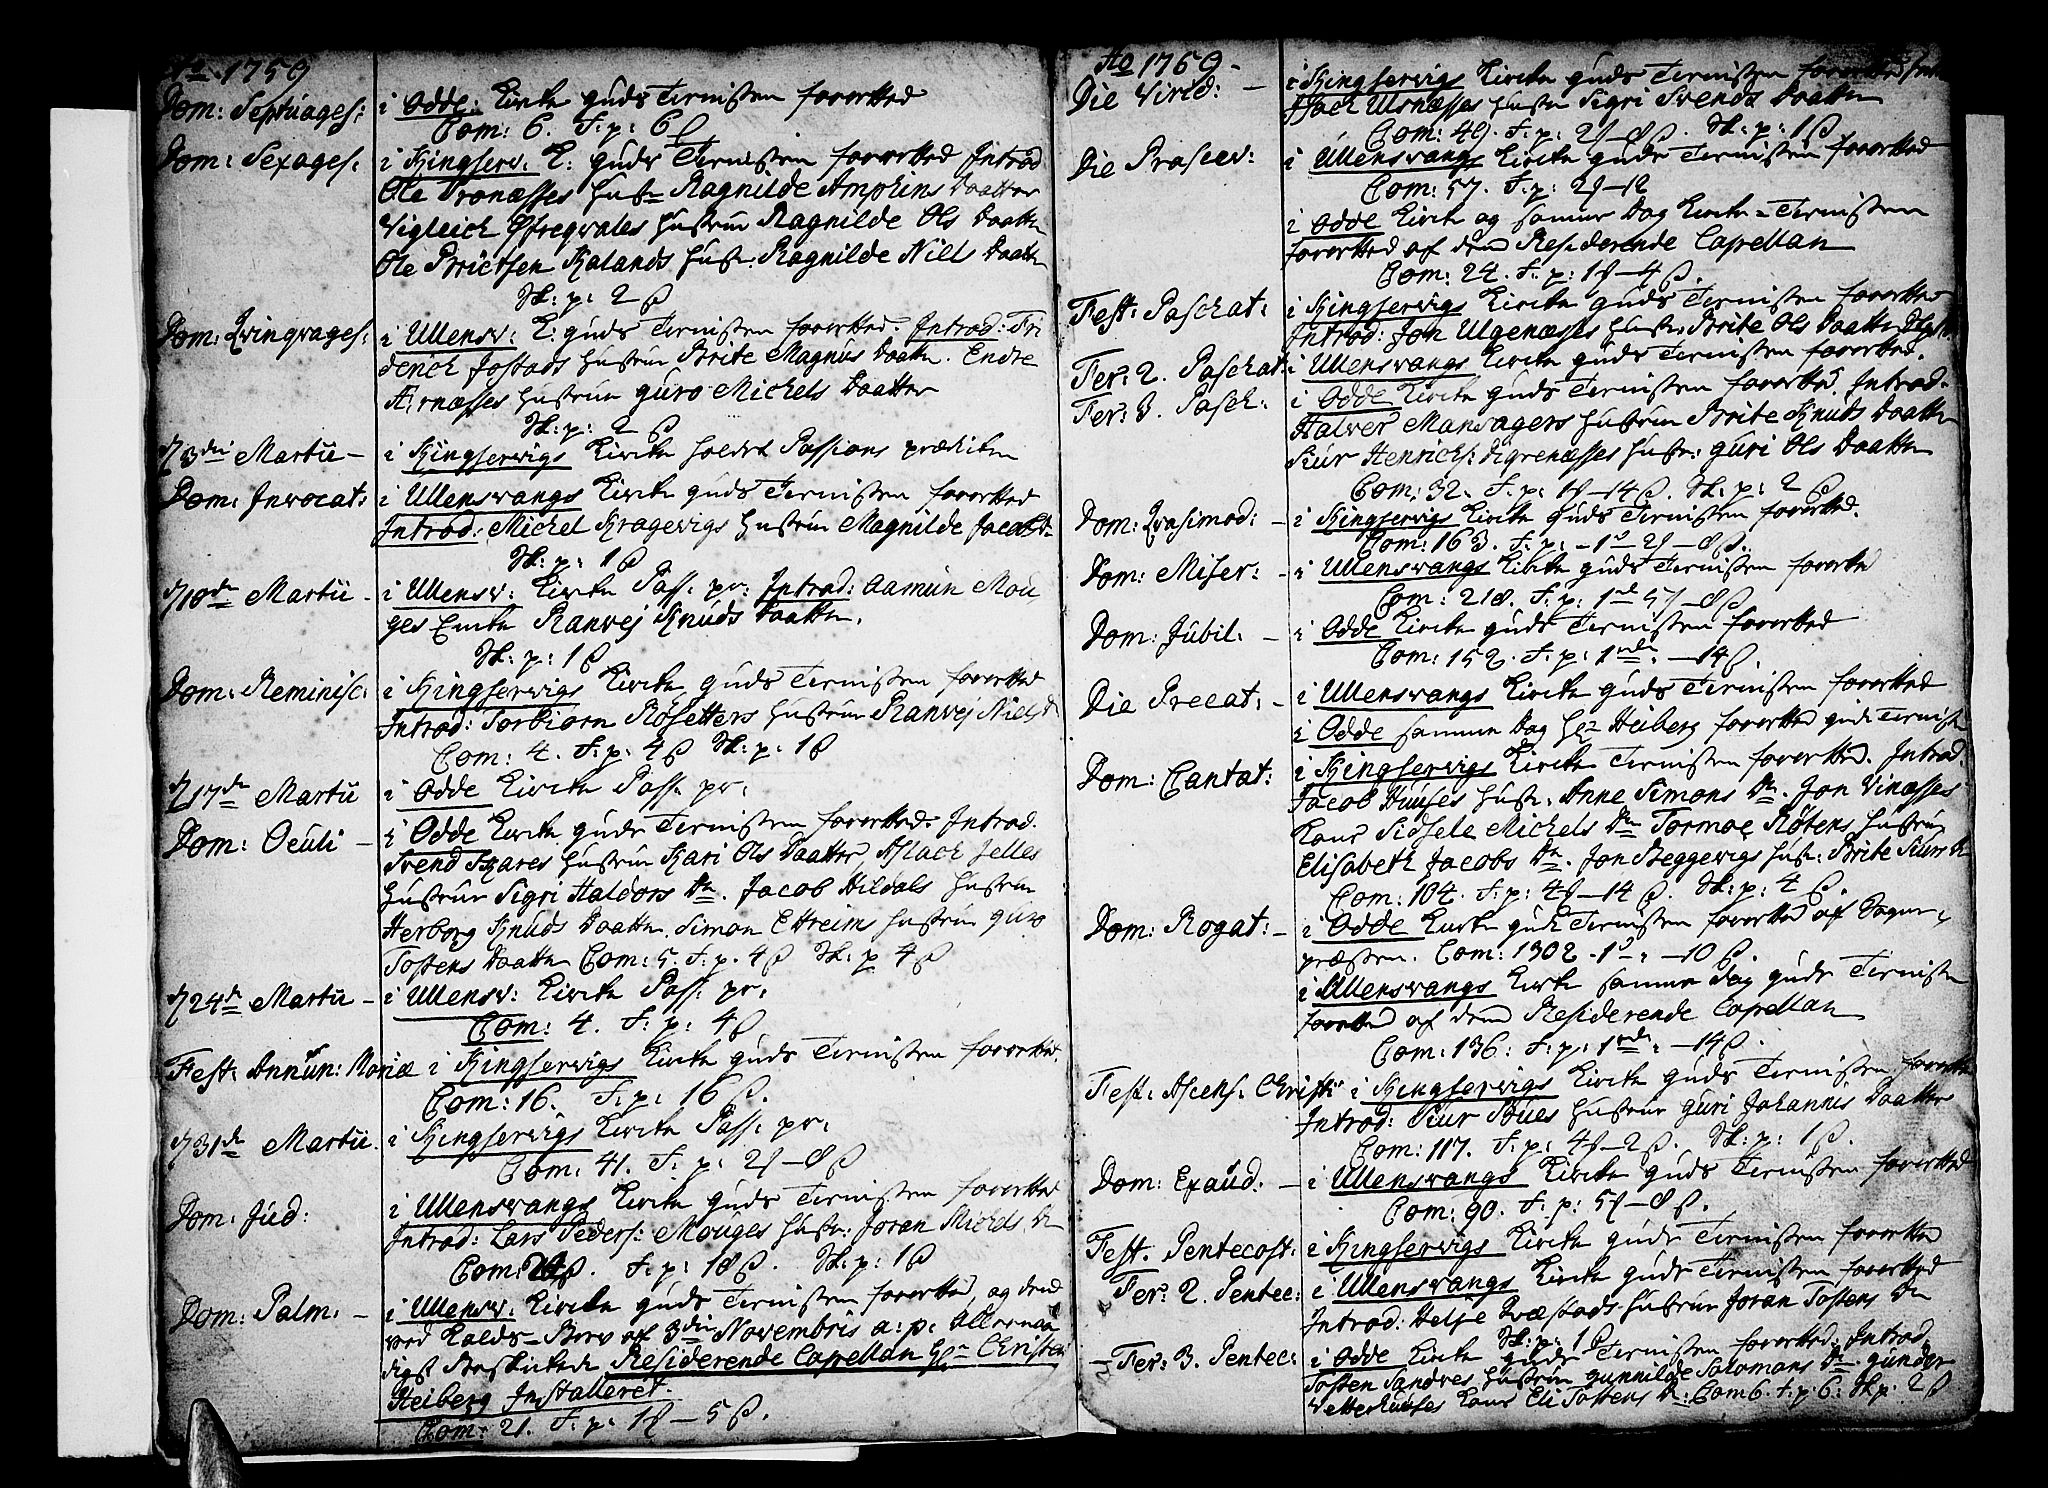 Ao 1759
Dom: Septuages: i Odde: Kircke guds Tienisten forretted
Com: 6. F: p: 6 β
Dom: Sexages: i Kingserv: K: guds Tienisten forretted Introd
Ole Tronæsses Hustr Ragnilde Amphins Daatter
Vigleich Østreqvales Hustrue Ragnilde Ols Daatter
Ole Kalands Hustr. Ragnilde Niels Daatter
Sk: p: 2 β
Dom: Qvinqvages: i Ullensv: K: guds Tienisten forretted. Introd: Fri
derich Jostads Hustrue Brite Magnus Daatter. Endre
Hustrue Guro Michels Daatter
Sk: p: 2 β
d 3die Martii – i Kingservigs Kircke holdet Passions prædiken
Dom: Invocat: i Ullensvangs Kircke guds Tienisten forretted
Introd: Michel Kragevigs Hustrue Magnilde Jacobs D
Sk: p: 1 β
d 10de Martii – i Ullensv: Kircke Pass: pr: Introd: Aamun Mou-
ges Encke Ranvej Knuds Daatter.
Sk: p: 1 β
Dom: Reminisc: i Kingservigs Kircke guds Tienisten forretted
Introd: Torbiørn Røsetters Hustrue Ranvej Niels D
Com: 4. F: p: 4 β Sk: p: 1 β
d 17de Martii i Odde Kircke Pass: pr:
Dom: Oculi – i Odde Kircke guds Tienisten forretted. Introd.
Svend Skares Hustrue Kari Ols Daatter, Aslach Jelles
Hustrue Sigri Haldors Dr. Jacob Hildals Hustrue
Herborg Knuds Daatter. Simon Eitreims Hustrue Guro
Tostens Daatter Com: 5. F: p. 4 β Sk: p 4 β
d 24de Martii – i Ullensv: Kircke Pass: pr:
Com: 4. F: p: 4 β
Fest: Annun: Mariæ i Kingservigs Kircke guds Tienisten forretted.
Com: 16. F: p: 16 β.
d 31de Martii. i Kingservigs Kircke Pass: pr:
Com: 41. F: p: 2 – 8 β
Dom: Jud: i Ullensvangs Kircke guds Tienisten forretted
Introd: Lars Peders: Mouges Hustr: Joran Michels Dr
Com: F: p: 18 β. Sk: p: 1 β
Dom: Palm: – i Ullensv: Kircke guds Tienisten forretted, og dend
ved Kalds-Brev af 3die Novembris a: p: Allernaa-
digst Beskickede Residerende Capellan Hr Christen
Heiberg Installeret.
Com: 21. F: p: 1 – 5 β.
Ao 1769 –
Die Virid: – i Kingservigs Kircke guds Tienisten forretted
Isach Hustr Sigri Svends Daatter
Com: 49. F: p: 2 – 8 β. Sk: p: 1 β
Die Parascev: i Ullensvangs Kircke guds Tienisten forretted
Com: 57. F: p: 2 – 12
i Odde Kircke og samme Dag Kircke-Tienisten
forretted af dend Residerende Capellan
Com: 24. F: p: 1 – 4 β.
Fest: Paschat: i Kingservigs Kircke guds Tienisten forretted
Introd: Jon Ulgenæsses Hustr: Brite Ols Daatter
Fer: 2. Paschat: i Ullensvangs Kircke guds Tienisten forretted.
Fer: 3. Pasch: i Odde Kircke guds Tienisten forretted. Introd.
Halver Mansagers Hustrue Brite Knuds Daatter
Siur Henrichs: Digrenæsses Hustr: Guri Ols Daatter
Com: 32. F: p: 1 – 14 β. Sk: p: 2 β
Dom: Qvasimod: – i Kingservigs Kircke guds Tienisten forretted.
Com: 163. F: p: – 1 – 2 – 8 β.
Dom: Miser: – i Ullensvangs Kircke guds Tienisten forretted
Com: 218. F: p: 1 – 8 β
Dom: Jubil: – i Odde Kircke guds Tienisten forretted
Com: 152. F: p: 1 – 14 β.
Die Precat: – i Ullensvangs Kircke guds Tienisten forretted
i Odde samme Dag Hr Heiberg forretted guds Tieniste
Dom: Cantat: i Kingservigs Kircke Tienisten forretted. Introd.
Jacob Huuses Hustr. Anne Simons Dr. Jon Vinæsses
Kone Sidsele Michels Dr Tormoe Røtens Hustrue
Elisabeth Jacobs Dr. Jon Beggevigs Hustr: Brite Siurs Dr
Com: 104. F: p: 4 – 14 β. Sk: p: 4 β.
Dom: Rogat: – i Odde Kircke guds Tienisten forretted af Sogne-
præsten. Com: 1302 – 1 – 10 β.
i Ullensvangs Kircke samme Dag guds Tieniste
forretted af dend Residerende Capellan
Com: 136: F: p: 1 – 14 β.
Fest: Ascens: Christi i Kingservigs Kircke guds Tienisten forretted
Introd: Siur Bues Hustrue Guri Johannis Daatter
Com: 117. F: p: 4 – 2 β. Sk: p: 1 β.
Dom: Exaud: – i Ullensvangs Kircke guds Tienisten forretted
Com: 90. F: p: 5 – 8 β.
Fest. Pentecost: i Kingservigs Kircke guds Tienisten forretted
Fer: 2. Pentec: i Ullensvangs Kircke guds Tienisten forretted
Introd: Helje Qvæstads Hustrue Joran Tostens Dr
Sk: p: 1 β
– Fer: 3. Pentec: i Odde Kircke guds Tienisten forretted: Introd.
Tosten Sandves Hustrue Gunnilde Salomons Dr. Gunder
Vetterhuuses Kone Eli Tostens Dr: Com 6. F: p: 6: Sk p: 2 β